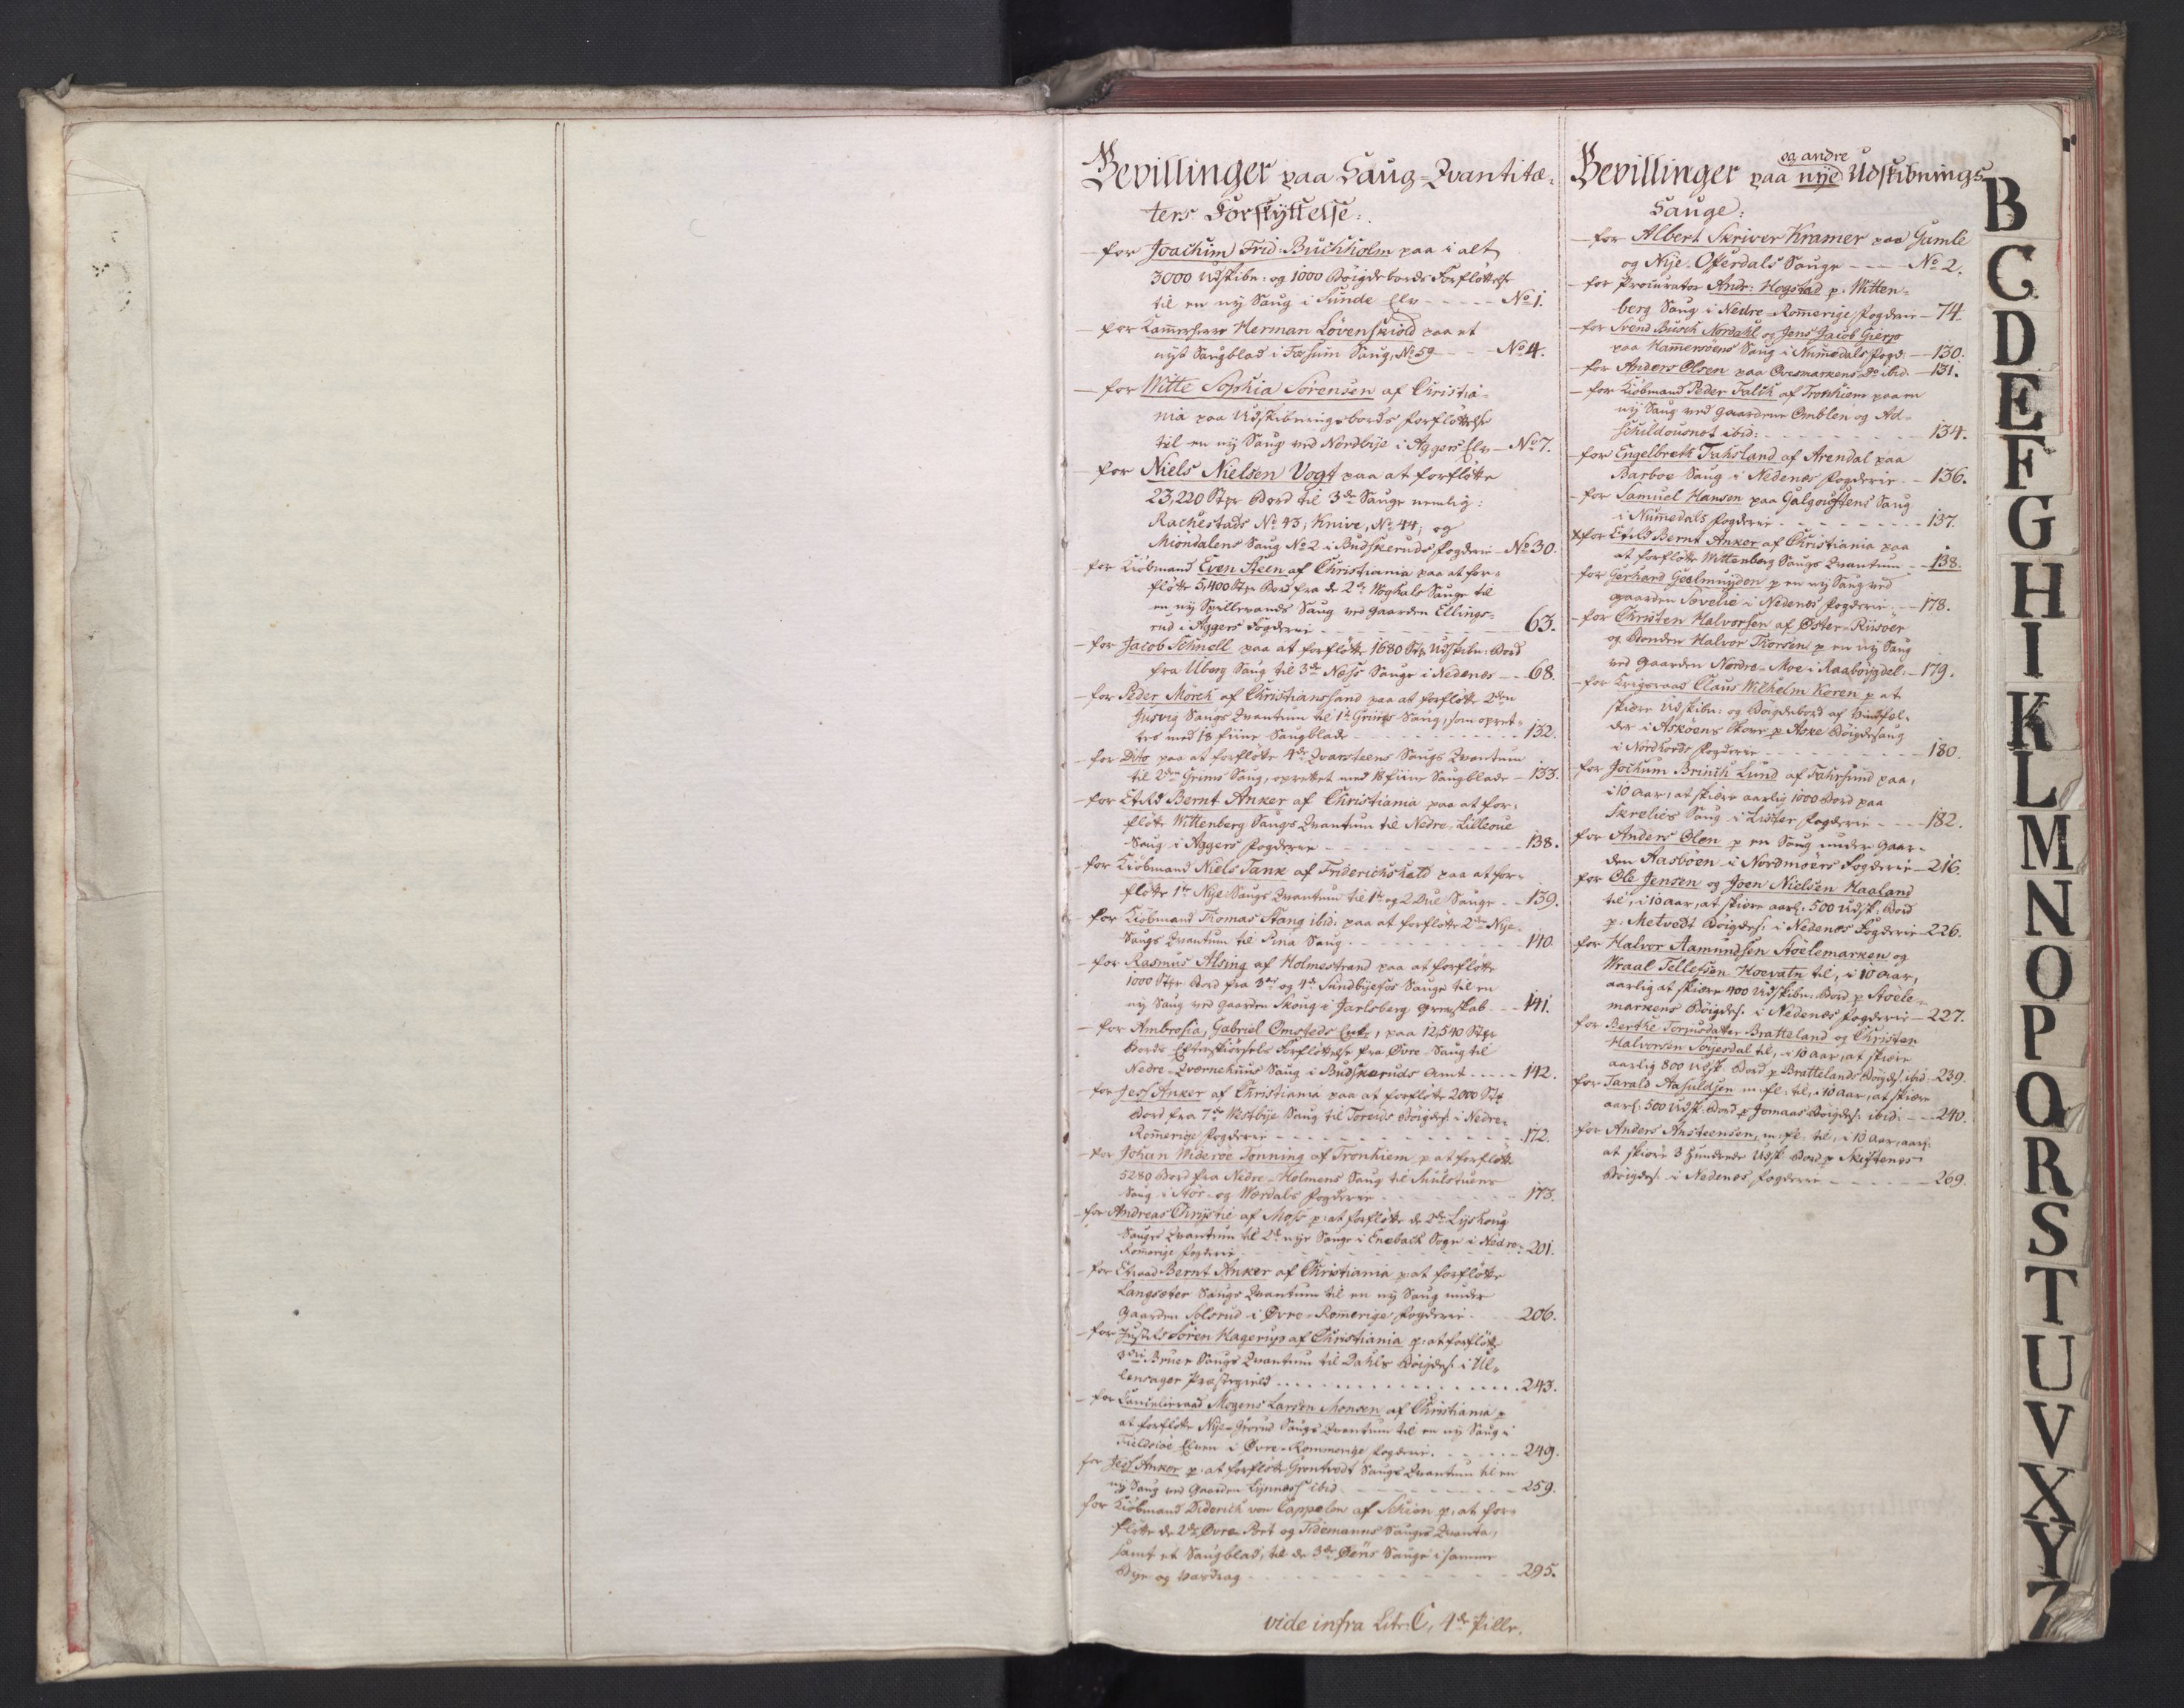 Bevillinger paa Saug-Qvantitæ-
ters Forflyttelse:
- for Joachim Frid: Buchholm paa i alt
3000 Udskibn: og 1000 Bøigdebords Forfløttelse
til en ny Saug i Sunde Elv - - - - - No 1.
- for Kammerherre Herman Løvenskiold paa et
nyt Saugblad i Fossum Saug, No 59 - - - No 4.
- for Witte Sophia Sørensen af Christia-
nia paa Udskibningsbords Forfløttelse
til en ny Saug ved Nordbye i Aggers Elv - No 7.
- for Niels Nielsen Vogt paa at forfløtte
23,220 Stkr Bord til 3de Sauge nemlig:
Rachestads No 43, Knive, No 44, og
Miondalens Saug No 2 i Budskeruds Fogderie - No 30.
- for Kiøbmand Even Steen af Christiania paa at for-
fløtte 5,400 Stkr Bord fra de 2de Woghals Sauge til
en ny Saug ved Gaarden Ellings-
rud i Aggers Fogderie - - - - 63.
- for Jacob Schnell paa at forfløtte 1680 Stk Udskibn: Bord
fra Uberg Saug til 3de Næss Sauge i Nedenes - - 68.
- for Peder Mørch af Christianssand paa at forfløtte 2den
Jusvig Saugs Qvantum til 1te Grims Saug, som opret-
tes med 18 fiine Saugblade - - - - 132.
- for Dito paa at forfløtte 4de Qvarsteens Saugs Qvantum
til 2den Grims Saug, oprettet med 18 fiine Saugblade - 133.
- for EtsRd Bernt Anker af Christiania paa at for-
fløtte Wittenberg Saugs Qvantum til Nedre-Lilleoue
Saug i Aggers Fogderie - - - - 138.
- for Kiøbmand Niels Tank af Friderichshald paa at for-
fløtte 1te Nye Saugs Qvantum til 1te og 2 Sauge - - 139.
- for Kiøbmand Thomas Stang ibid: paa at forfløtte 2den Nye-
Saugs Qvantum til Saug - - - - 140.
- for Rasmus Alsing af Holmestrand paa at forfløtte
1000 Stkr Bord fra 3die og 4de Sundbyefos Sauge til en
ny Saug ved Gaarden Skoug i Jarlsberg Grevskab - - 141.
- for Ambrosia, Gabriel Omsteds Enke, paa 12,540 Stkr
Bords Forfløttelse fra Øvre-Saug til
Nedre-Qværnehuus Saug i Budskeruds Amt - - - - 142.
- for Jess Anker af Christiania paa at forfløtte 2000 Stk
Bord fra 7de Westbye Saug til Toreuds Bøigdes: i Nedre-
Romerige Fogderie - - - - 172.
- for Johan Widerøe Tonning af Tronhiem p: at forfløtte
5280 Bord fra Nedre-Holmens Saug til Muulstuens
Saug i Stør- og Værdals Fogderie - - - - 173.
- for Andreas Chrystie af Moss p: at forfløtte de 2de Lyshoug
Sauges Qvantum til 2de nye Sauge i Enebach Sogn i Nedre- 201.
Romerige Fogderie
- for Etsraad Bernt Anker af Christiania p: at forfløtte
Langsæter Saugs Qvantum til en ny Saug under
Gaarden Solsrud i Øvre-Romerige Fogderie - - 206.
- for Søren Hagerup af Christiania p: at forfløtte
3die Bruer Saugs Qvantum til Dahls Bøigdes: i Ul-
lensager Præstegield - - - - 243.
- for Cancelieraad Mogens Larsen Monsen af Christiania p:
at forfløtte Nye-Grorud Saugs Qvantum til en ny Saug i
Fieldsiøe Elven i Øvre-Rommerige Fogderie - - - - 249.
for Jess Anker p: at forfløtte Grøntvedt Saugs Qvantum til en
ny Saug ved Gaarden Lynness ibid - - - - 259.
for Kiøbmand Diderich von Cappelen af Schien p: at for-
fløtte de 2de Øvre-Port og Tidemanns Sauges Qvanta,
samt et Saugblad, til de 3de Øens Sauge i samme
Bye og Vasdrag - - - - 295.
vide infra Litr: C, 4de Pille.
Bevillinger paa nye og andre Udskibnings
Sauge:
- for Albert Skriver Kramer paa Gamle
og Nye-Oferdals Sauge - - - No 2.
- for Procurator Andr: Hogstad p: Witten-
berg Saug i Nedre-Romerige Fogderie - 74.
- for Svend Busch Nordahl og Jens Jacob Gierp
paa Hammersøens Saug i Nummedals Fogd: - 130.
- for Anders Olsen paa Ovesmarkens Do ibid - 131.
- for Kiøbmand Peder Falch af Tronhiem paa en
ny Saug ved Gaardene Omblen og Ad-
schildousnot ibid: - - - - 134.
- for Engelbreth Fahsland af Arendal paa
Barboe Saug i Nedenes Fogderie - - 136.
- for Samuel Hansen paa Galgouftens Saug
i Numedals Fogderie - - - - 137.
+ for EtsRd Bernt Anker af Christiania paa
at forfløtte Wittenberg Saugs Qvantum - - 138.
- for Gerhard Geelmuyden p: en ny Saug ved
Gaarden Sævelie i Nedenes Fogderie - - 178.
- for Christen Halvorsen af Øster-Riisøer
og Bonden Halvor Thorsen p: en ny Saug
ved Gaarden Nordre-Moe i Raabøigdel. - 179.
- for Krigsraad Claus Wilhelm Koren p: at
skiære Udskibn: og Bøigdebord af Vindfæl-
der i Askøens Skove p: Aske Bøigdesaug
i Nordhords Fogderie - - - - 180.
for Jochum Brinch Lund af Fahrsund paa,
i 10 Aar, at skiære aarlig 1000 Bord paa
Skrelies Saug i Lister Fogderie - - - 182.
for Anders Olsn p: en Saug under Gaar-
den Aasbøen i Nordmørs Fogderie - 216.
for Ole Jensen og Joen Nielsen Haaland
til, i 10 Aar, at skiære aarl: 500 Udsk: Bord
p: Metvedt Bøigdes: i Nedenes Fogderie - 226.
for Halvor Aamundsen Støelemarken og
Wraal Tellefsen Hoevatn til, i 10 Aar,
aarlig at skiære 400 Udskibn: Bord p: Støele-
markens Bøigdes: i Nedenes Fogderie - 227.
for Berthe Torjusdatter Bratteland og Christen
Halvorsen Soyesdal til, i 10 Aar, at skiære
aarlig 800 Udsk: Bord p: Brattelands Bøigdes: ibid: - 239.
for Tarald Aasuldsen m: fl: til, i 10 Aar, at skiære
aarl: 500 Udsk: Bord p: Jomaas Bøigdes: ibid: - - 240.
for Anders Ansteensen, m: fl: til, i 10 Aar, aarl:
at skiære 3 Hundrede Udsk: Bord p: Skiftenes
Bøigdes: i Nedenes Fogderie - - - - 269.
B
C
D
E
F
G
H
I
K
L
M
N
O
P
Q
R
S
T
U
V
X
Y
Z